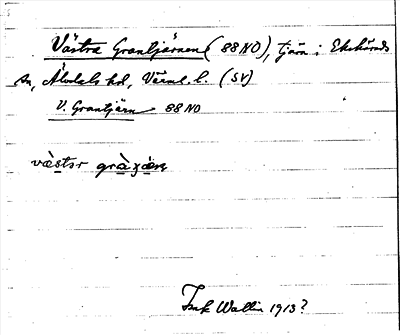 Västra Grantjärnen (88 NO), tjärn i Ekshärads
sn, Älvdals hd, Värml. l. (SV)
V. Grantjärn 88 NO
västər
Wallin 1913?